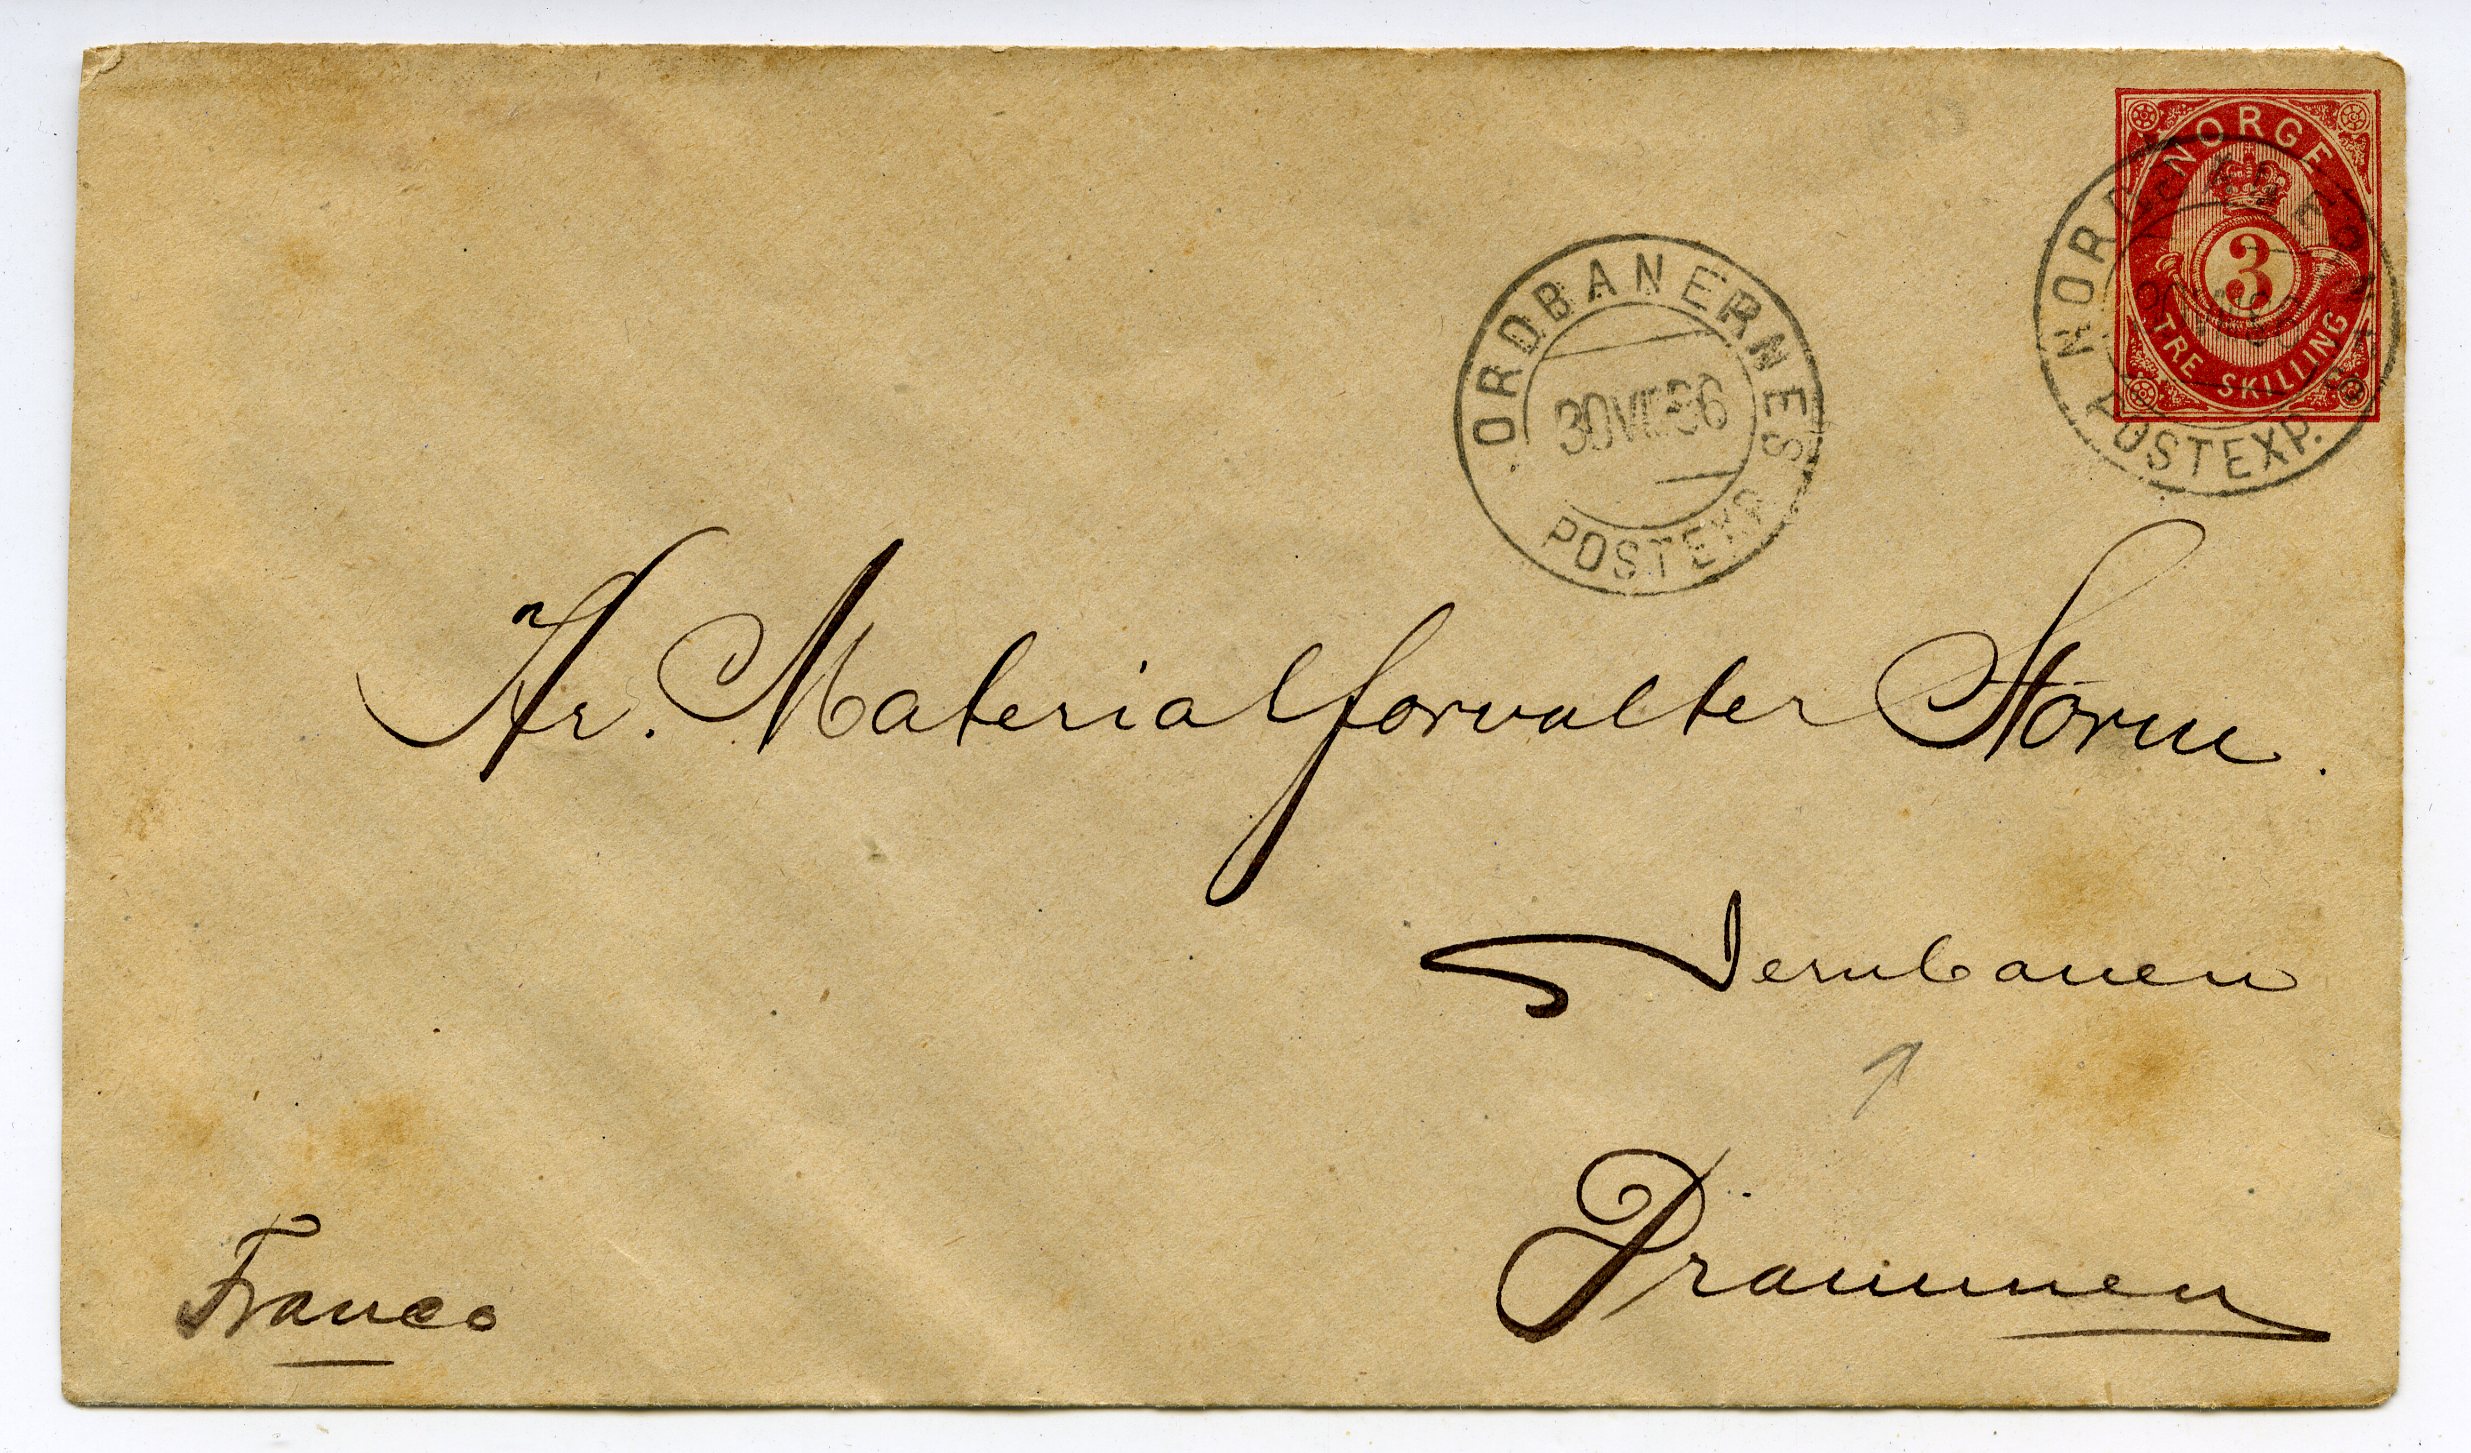 NORGE
3
TRE SKILLING
NORDBANERNES
POSTEXP.
ORDBANERNES
30 VII 86
POSTEXP.
Hr. Materialforvalter Storm.
Jernbanen
Drammen
Franco